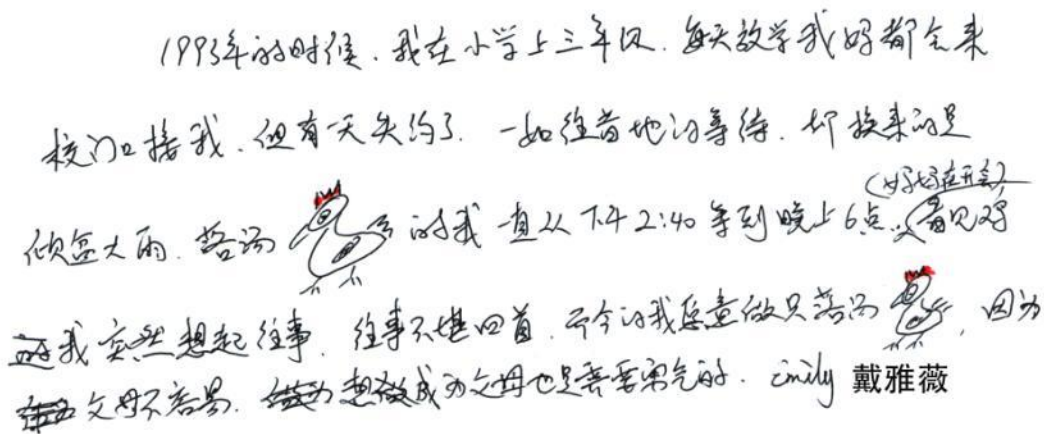 1993年的时候.我在小学上三年级.每天放学我妈都会来
校门口接我.但有一天失约了.一如往昔地的等待.却换来的是
(妈妈在开会)
倾盆大雨.落汤的我一直从下午2:40等到晚上6点.看见鸡
我突然想起往事.往事不堪回首.而今的我愿意做只落汤,因为
父母不容易.想成为父母也是需要勇气的.Emily 戴雅薇